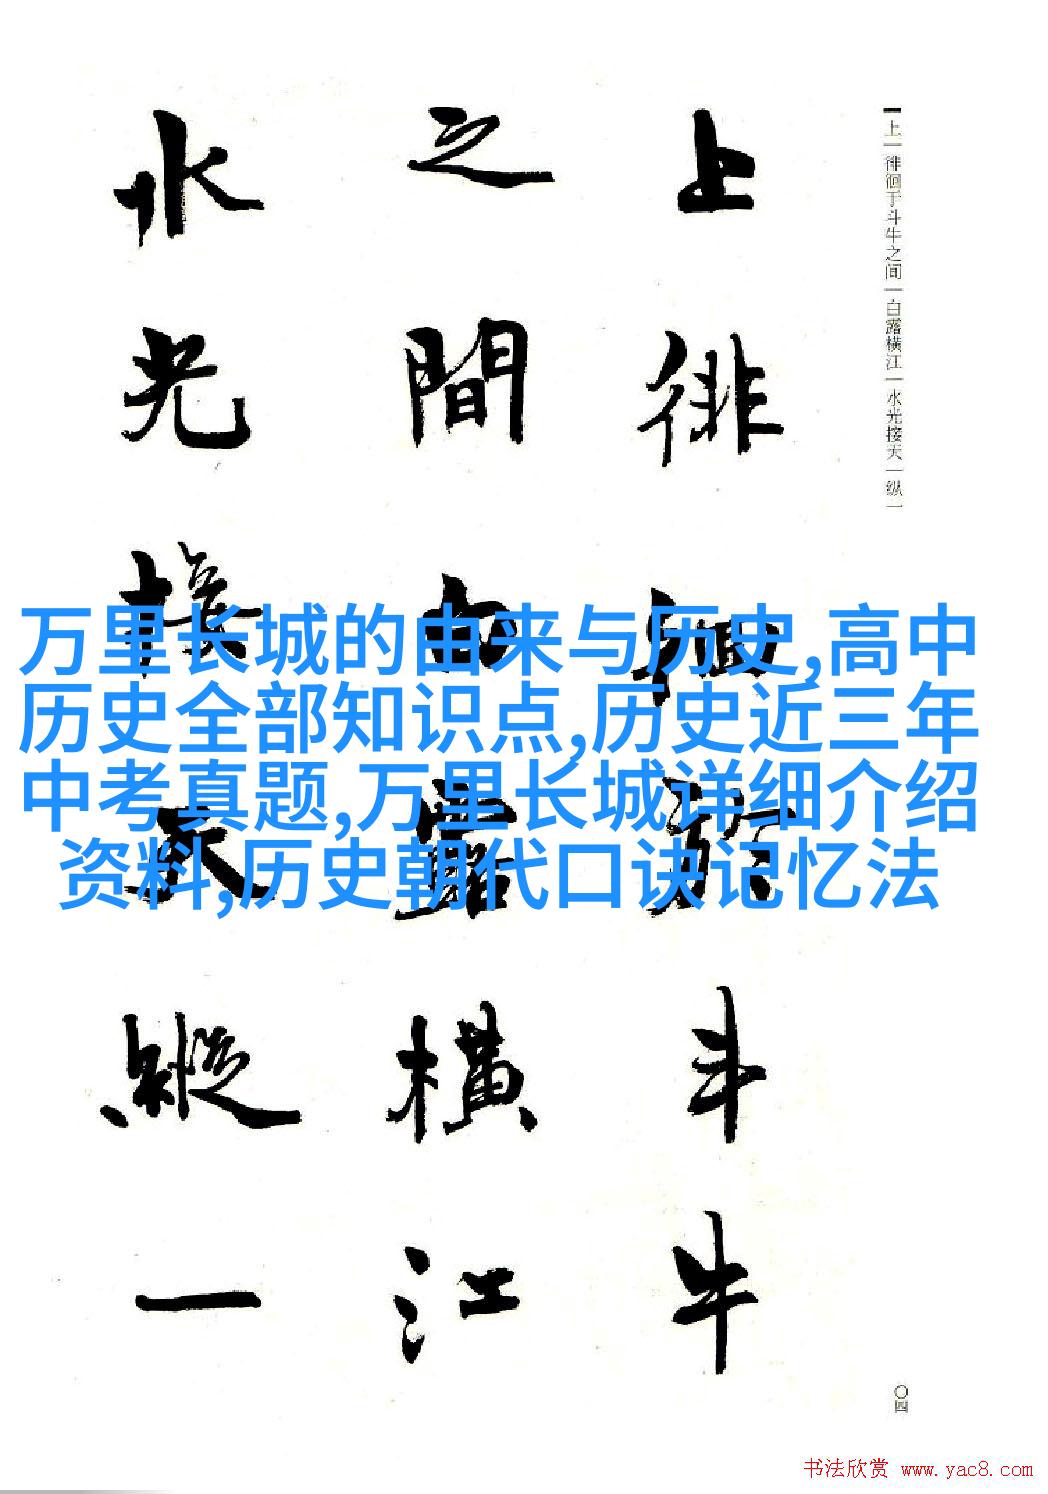 上一徘徊于斗牛之间一白露横江一水光接天一纵一
上徘徊於斗牛
之間白露橫江
水光接天縱一
万里长城的由来与历史,高中
历史全部知识点,历史近三年
中考真题,万里长城详细介绍
资料,历史朝代口诀记忆法
〇四
书法欣赏 www.yac8.com